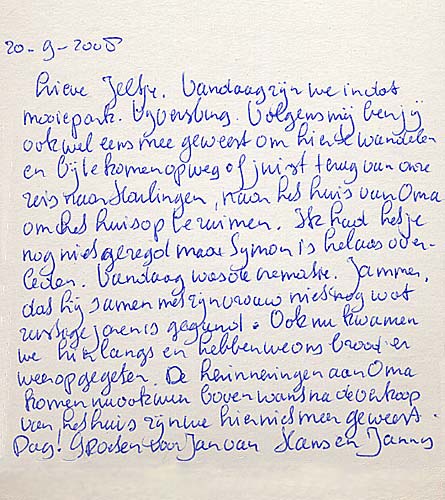 20-9-2008
Lieve Jeltje. Vandaag zijn we in dat
mooie park. Vijversburg. Volgens mij ben jij
ook wel eens mee geweest om hier te wandelen
en bij te komen op weg of juist terug van onze
reis naar Harlingen, naar het huis van Oma
om het huis op te ruimen. Ik had het je
nog niet gezegd maar Symon is helaas over-
leden. Vandaag was de crematie. Jammer,
dat hij samen met zijn vrouw niet nog wat
rustige jaren is gegund. Ook nu kwamen
we hier langs en hebben we ons brood er
weer opgegeten. De herinneringen aan Oma
komen nu ook weer boven want na de verkoop
van het huis zijn we hier niet meer geweest.
Dag! Groeten voor Jan van Hans en Janny